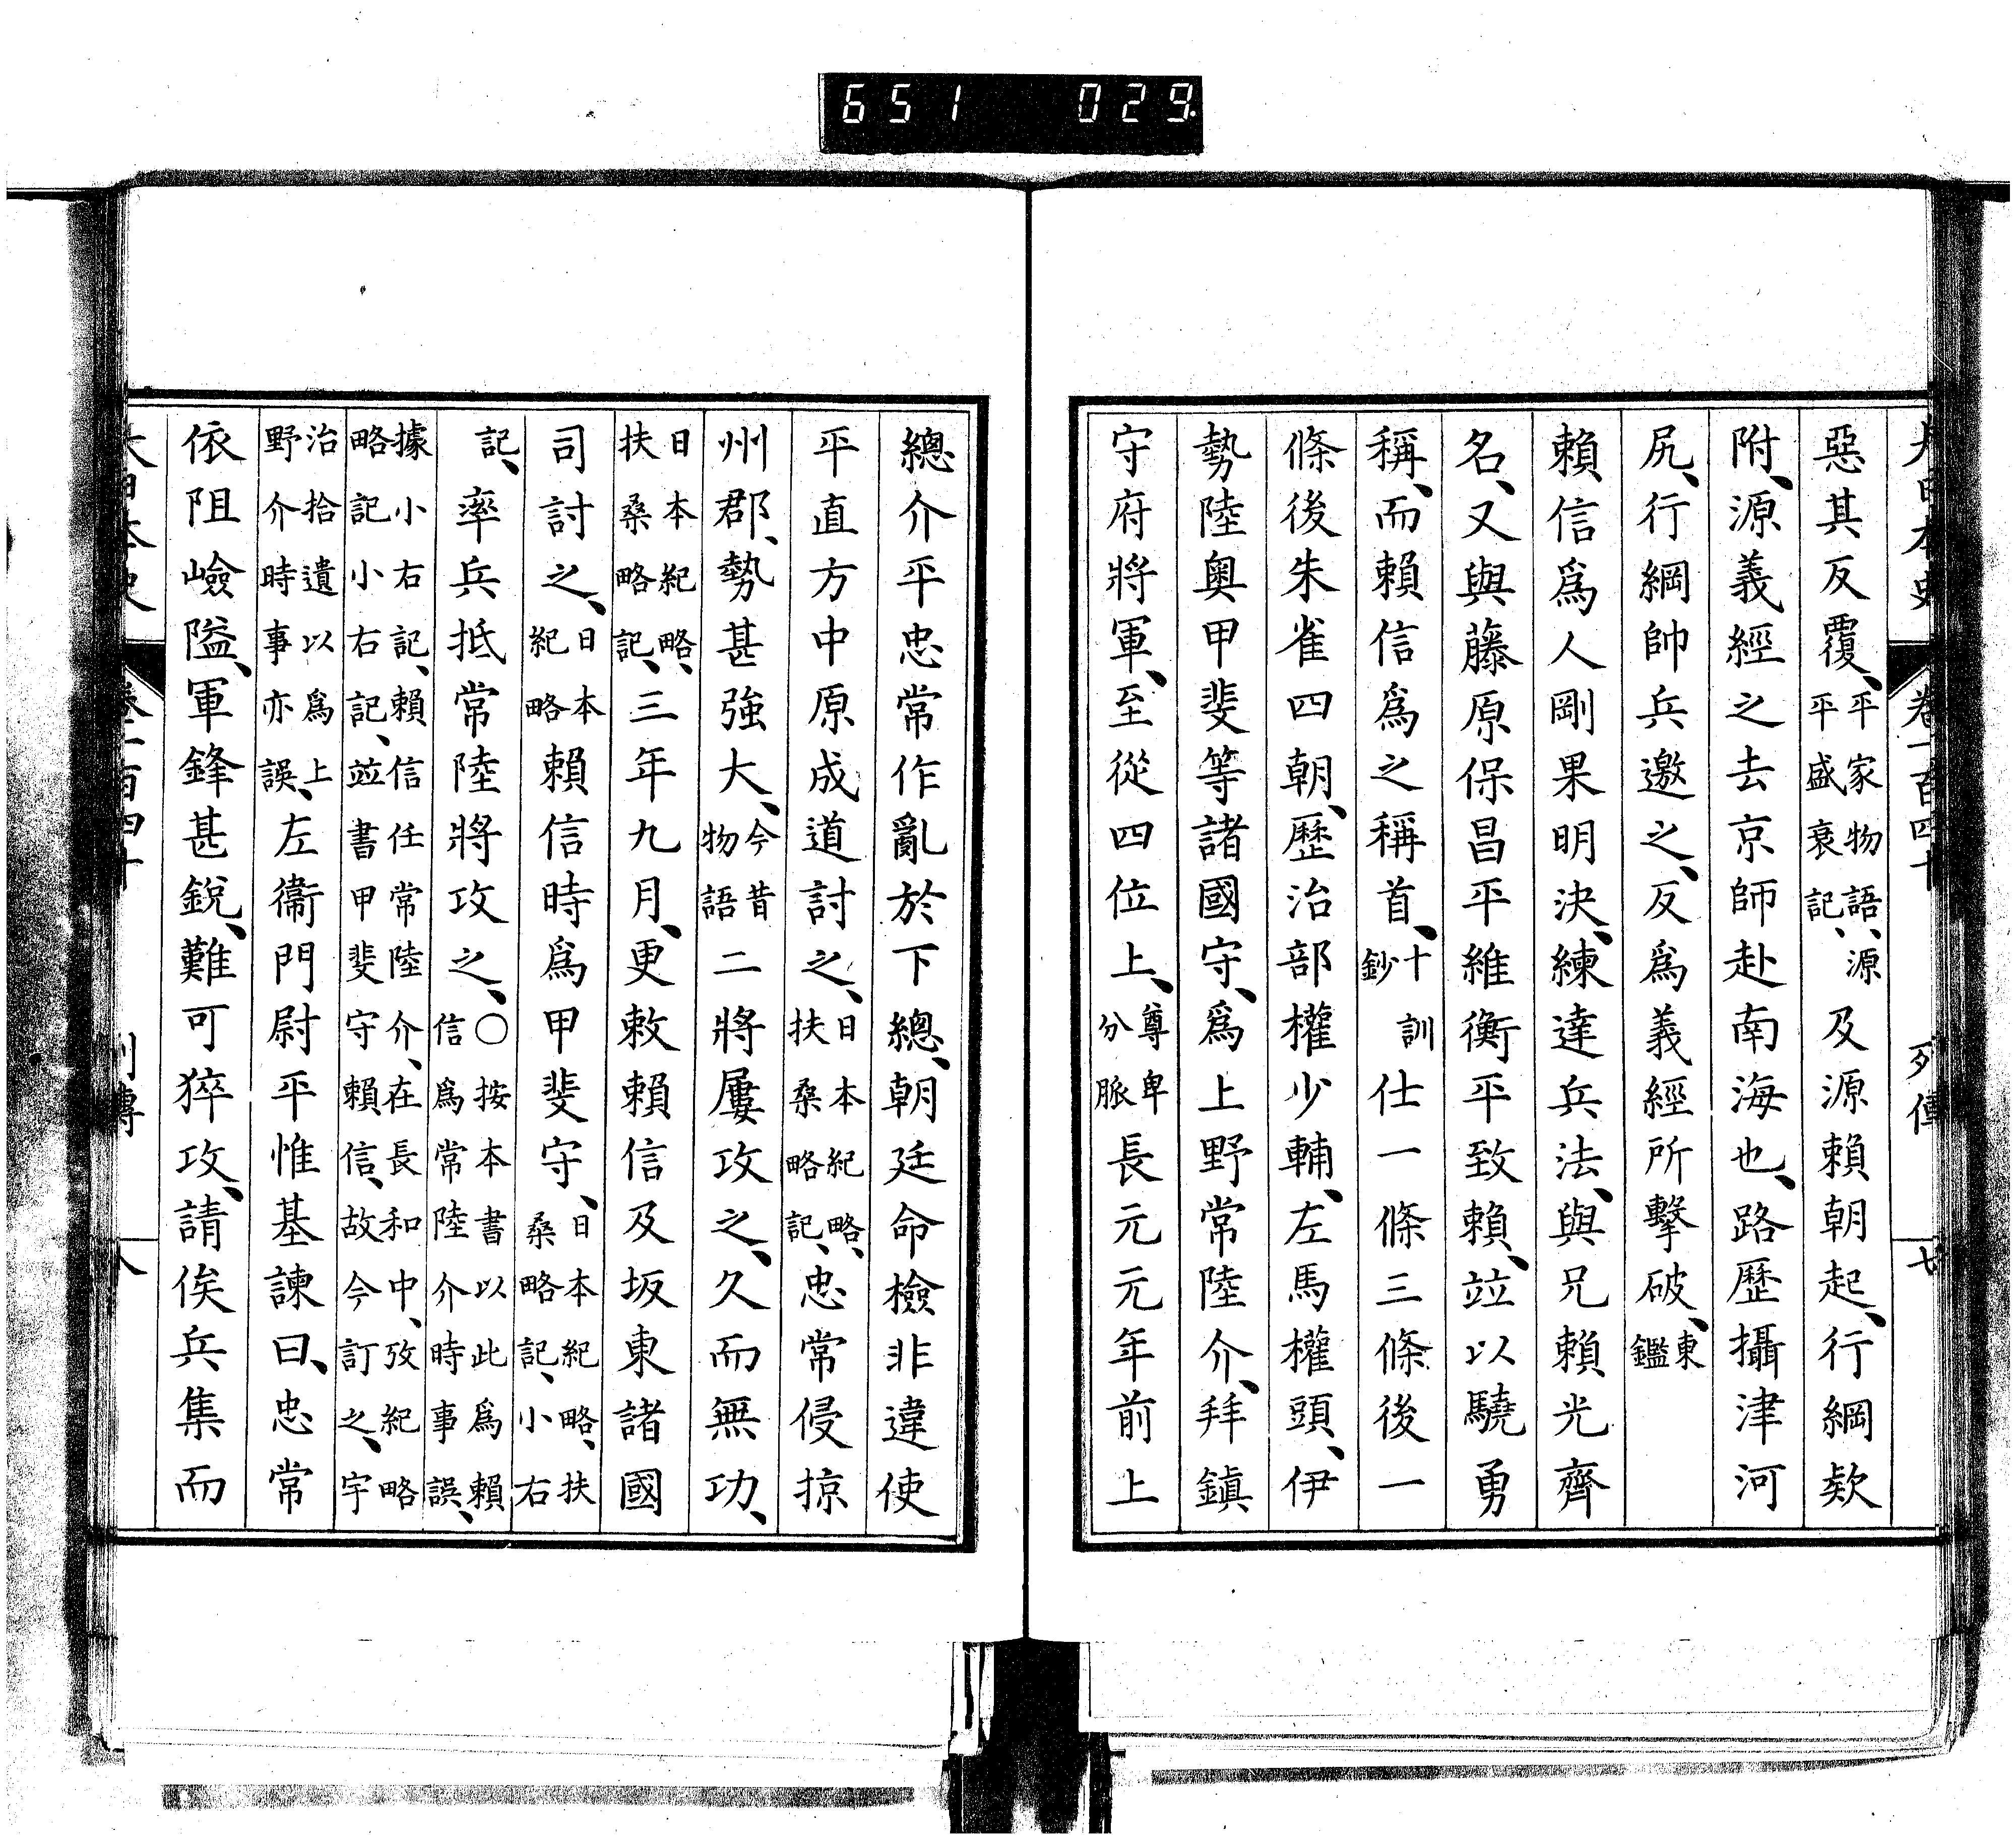 651 029
大日本史 卷一百四十 列傳 七
惡其反覆、平家物語、源平盛衰記、及源賴朝起、行綱欵
附、源義經之去京師赴南海也、路歷攝津河
尻、行綱帥兵邀之、反爲義經所擊破、東鑑
賴信爲人剛果明決、練達兵法、與兄賴光齊
名、又與藤原保昌平維衡平致賴、竝以驍勇
稱、而賴信爲之稱首、十訓鈔仕一條三條後一
條後朱雀四朝、歷治部權少輔、左馬權頭、伊
勢陸奧甲斐等諸國守、爲上野常陸介、拜鎭
守府將軍、至從四位上、尊卑分脈長元元年前上
總介平忠常作亂於下總、朝廷命檢非違使
平直方中原成道討之、日本紀略、扶桑略記、忠常侵掠
州郡、勢甚強大、今昔物語二將屢攻之、久而無功、
日本紀略、扶桑略記、三年九月、更敕賴信及坂東諸國
司討之、日本紀略賴信時爲甲斐守、日本紀略、扶桑略記、小右
記、率兵抵常陸將攻之、〇按本書以此爲賴信爲常陸介時事誤、
據小右記、賴信任常陸介、在長和中、攷紀略略記小右記、竝書甲斐守賴信、故今訂之、宇
治拾遺以爲上野介時事亦誤、左衞門尉平惟基諫曰、忠常
依阻嶮隘、軍鋒甚銳、難可猝攻、請俟兵集而
大日本史 卷一百四十 列傳 八